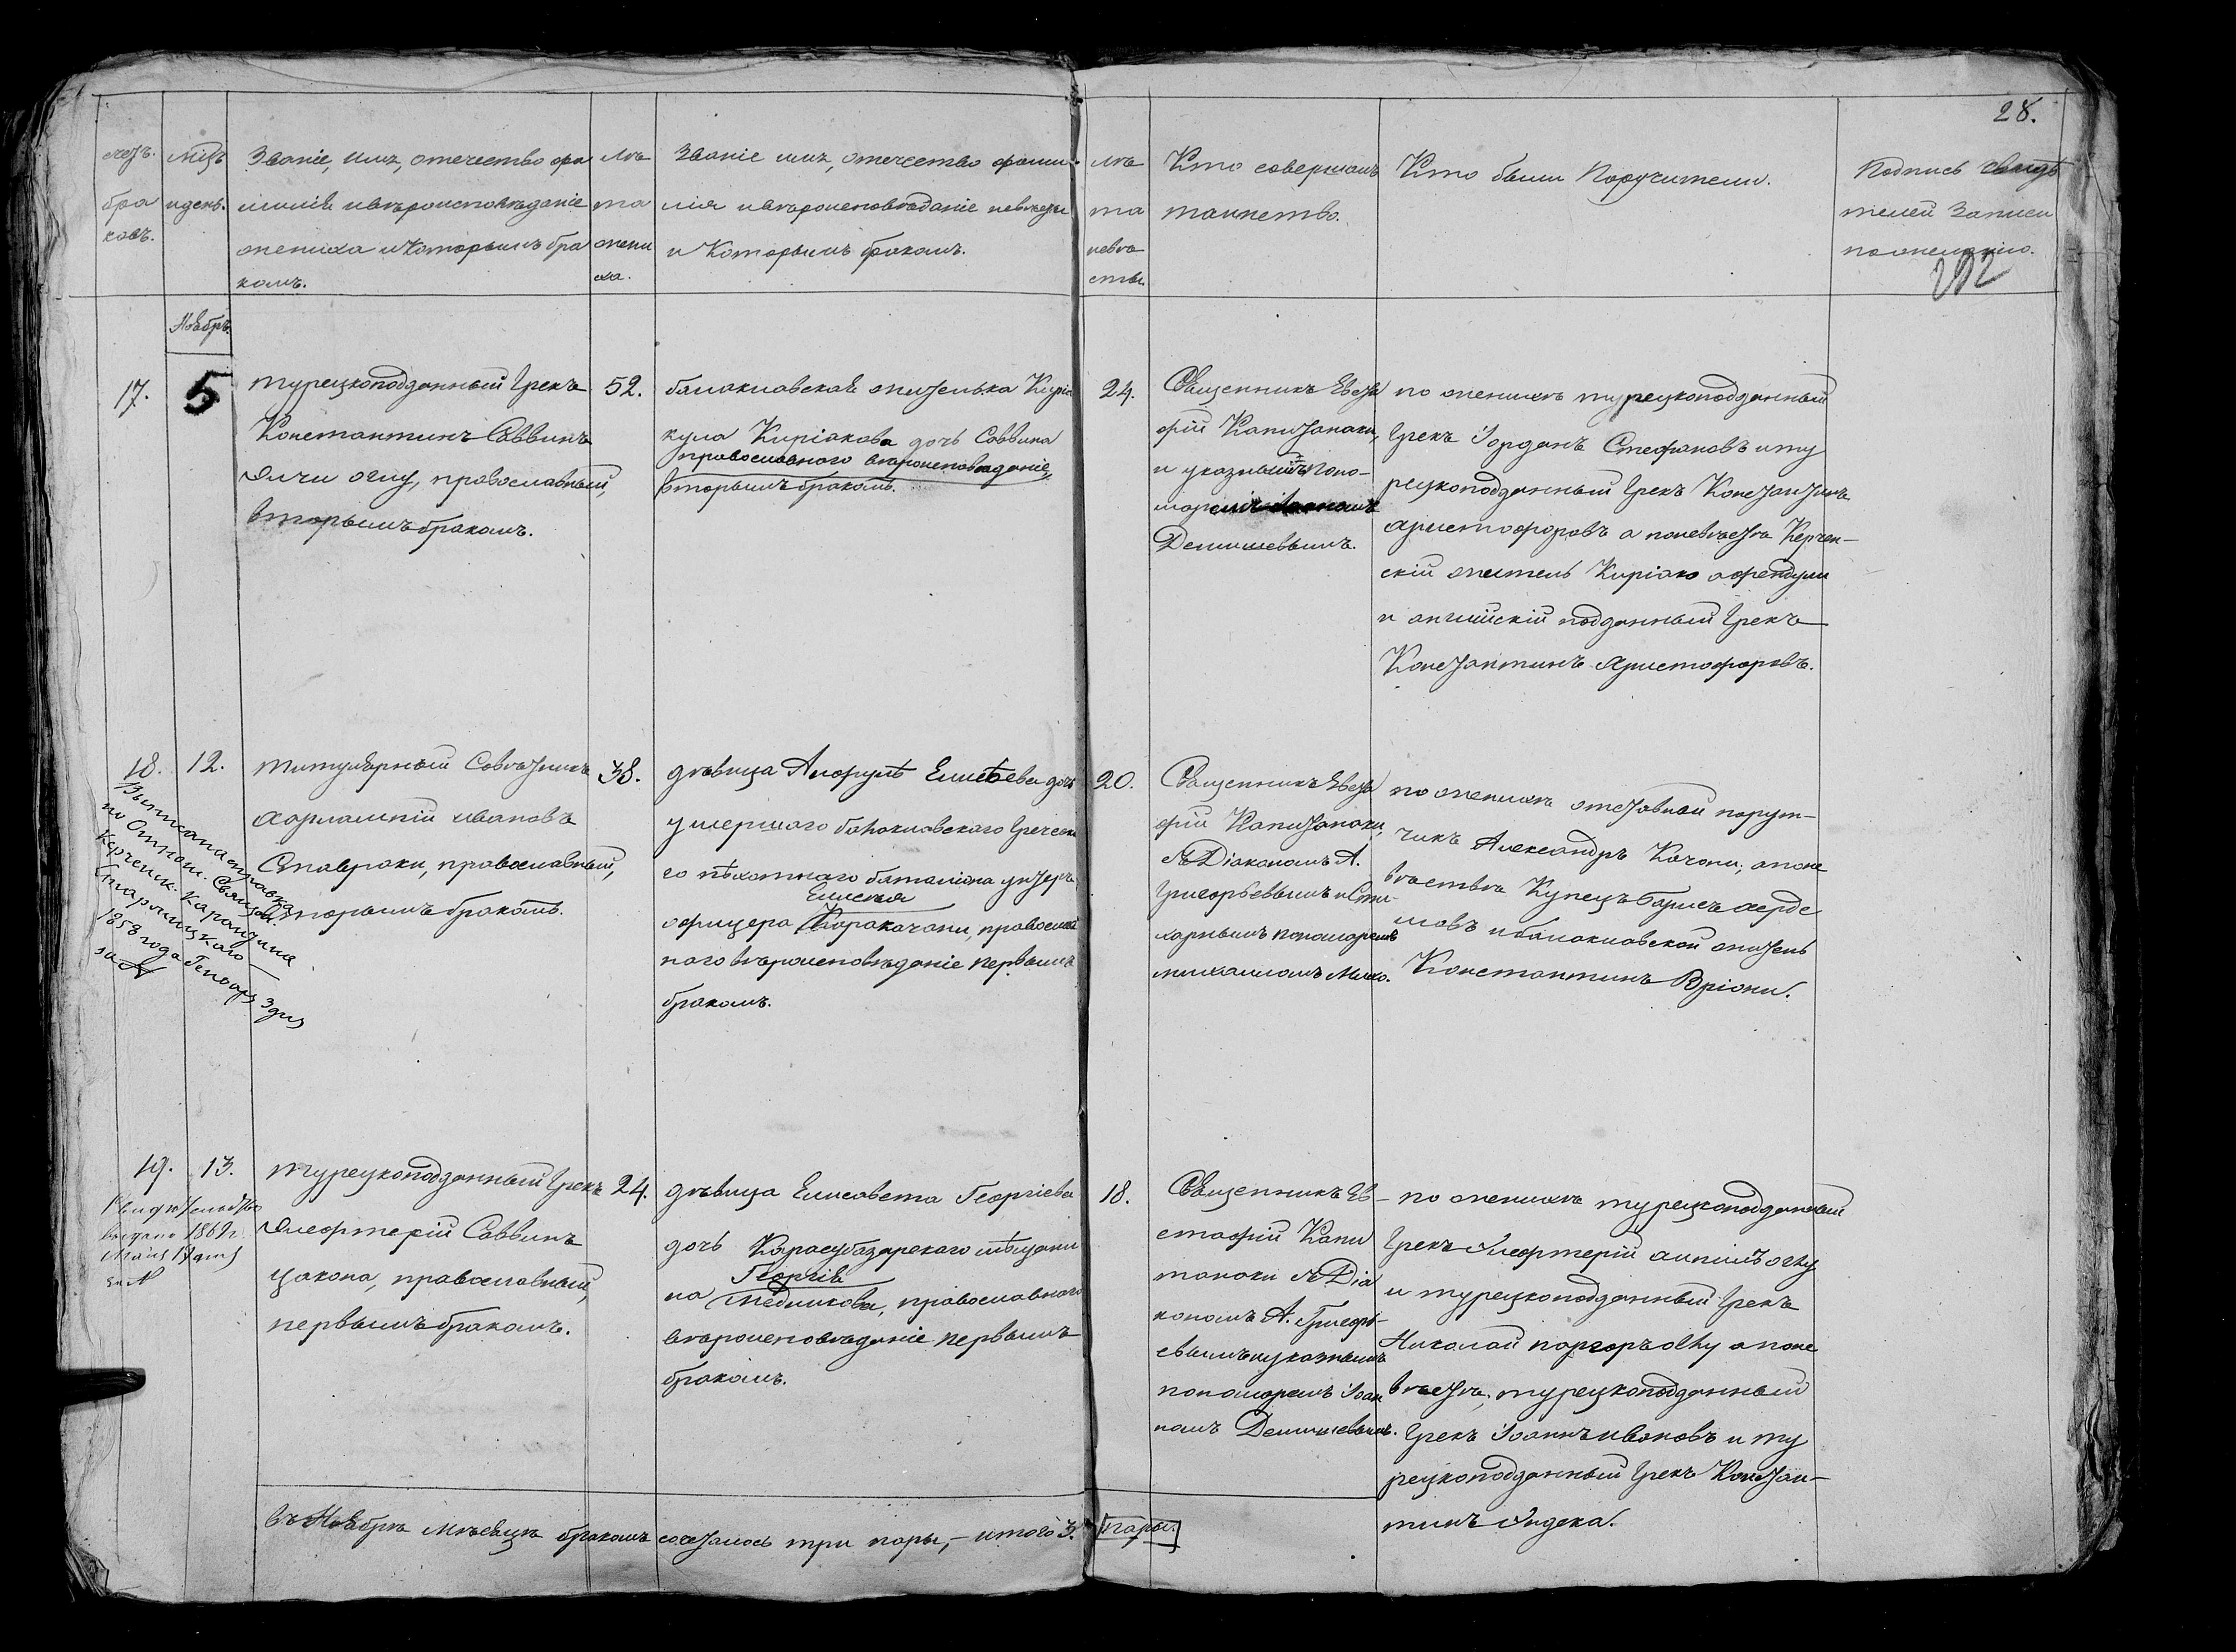 28.
счетъ браковъ.
мцъ и день.
Званіе, имя, отечество фа
миліе и вѣроисповѣданіе
жениха и которымъ бра
комъ.
лѣ
та
жени
ха.
Званіе имя, отечество фами
лія и вѣроисповѣданіе невѣсты
и которымъ бракомъ.
лѣ
та
невѣ
сты.
Кто совершалъ
таинство.
Кто были поручители.
Подпись свидѣ
телей записи
по желанію.
202
Ноябрь.
17.
5
турецкоподданный грекъ
Константинъ Саввинъ
Элчи оглу, православный,
вторымъ бракомъ.
52.
балаклавская жителька Кирія
кула Киріакова дочь Саввина
православного вѣроисповѣданіе,
вторымъ бракомъ.
24.
Священникъ Евста
фій Капитанаки,
и указнымъ поно-
маремъ Іоаномъ
Демишевымъ.
по женихѣ турецкоподданный
грекъ Іорданъ Стефановъ и ту
рецкоподданный грекъ Константинъ
Аристофоровъ а по невѣстѣ Керчен-
скій житель Киріако Афендули
и англійскій подданный грекъ
Константинъ Аристофоровъ.
18.
12.
Выписана справка
по Отнош. Священ.
Керченск. Карантина
Старицкаго
1858 года Генваря 3 дня
за №
титулярный Совѣтникъ
Харлампій Ивановъ
Ставраки, православный,
вторымъ бракомъ.
38.
дѣвица Анфуля Елисѣева дочь
умершаго балаклавского греческа
го пѣхотнаго баталіона унтеръ
Елисея
офицера Каракачани, православ
ного вѣроисповѣданіе первымъ
бракомъ.
20.
Священникъ Евста
фій Капитанаки,
съ Діакономъ А.
Григорьевымъ и Сти-
харнымъ пономаремъ
Михаиломъ
по женихѣ отставной порут-
чикъ Александръ Качони, а по не
вѣстѣ купецъ Борисъ
и балаклавской житель
Константинъ Вріони.
19.
13.
Свидѣтельство
выдано 1862 г.
Маія 17 дня
за №
турецкоподданный грекъ
Элефтерій Саввинъ
Цакона, православный,
первымъ бракомъ.
24.
дѣвица Елисавета Георгіева
дочь Карасубазарского мѣщани
Георгія
на Медникова, православного
вѣроисповѣданіе первымъ
бракомъ.
18.
Священникъ Ев-
стафій Капи
танаки съ Діа
кономъ А. Григорь-
евымъ и указнымъ
пономаремъ Іоан
номъ Демишевымъ.
по женихѣ турецкоподданный
грекъ Элефтерій оглу
и турецкоподданный грекъ
Николай оглу а по не
вѣстѣ, турецкоподданный
грекъ Іоаннъ Ивановъ и ту
рецкоподданный грекъ Констан-
тинъ Яндека.
въ Ноябрѣ мѣсяцѣ бракомъ сочеталось три пары, - итого 3. пары.